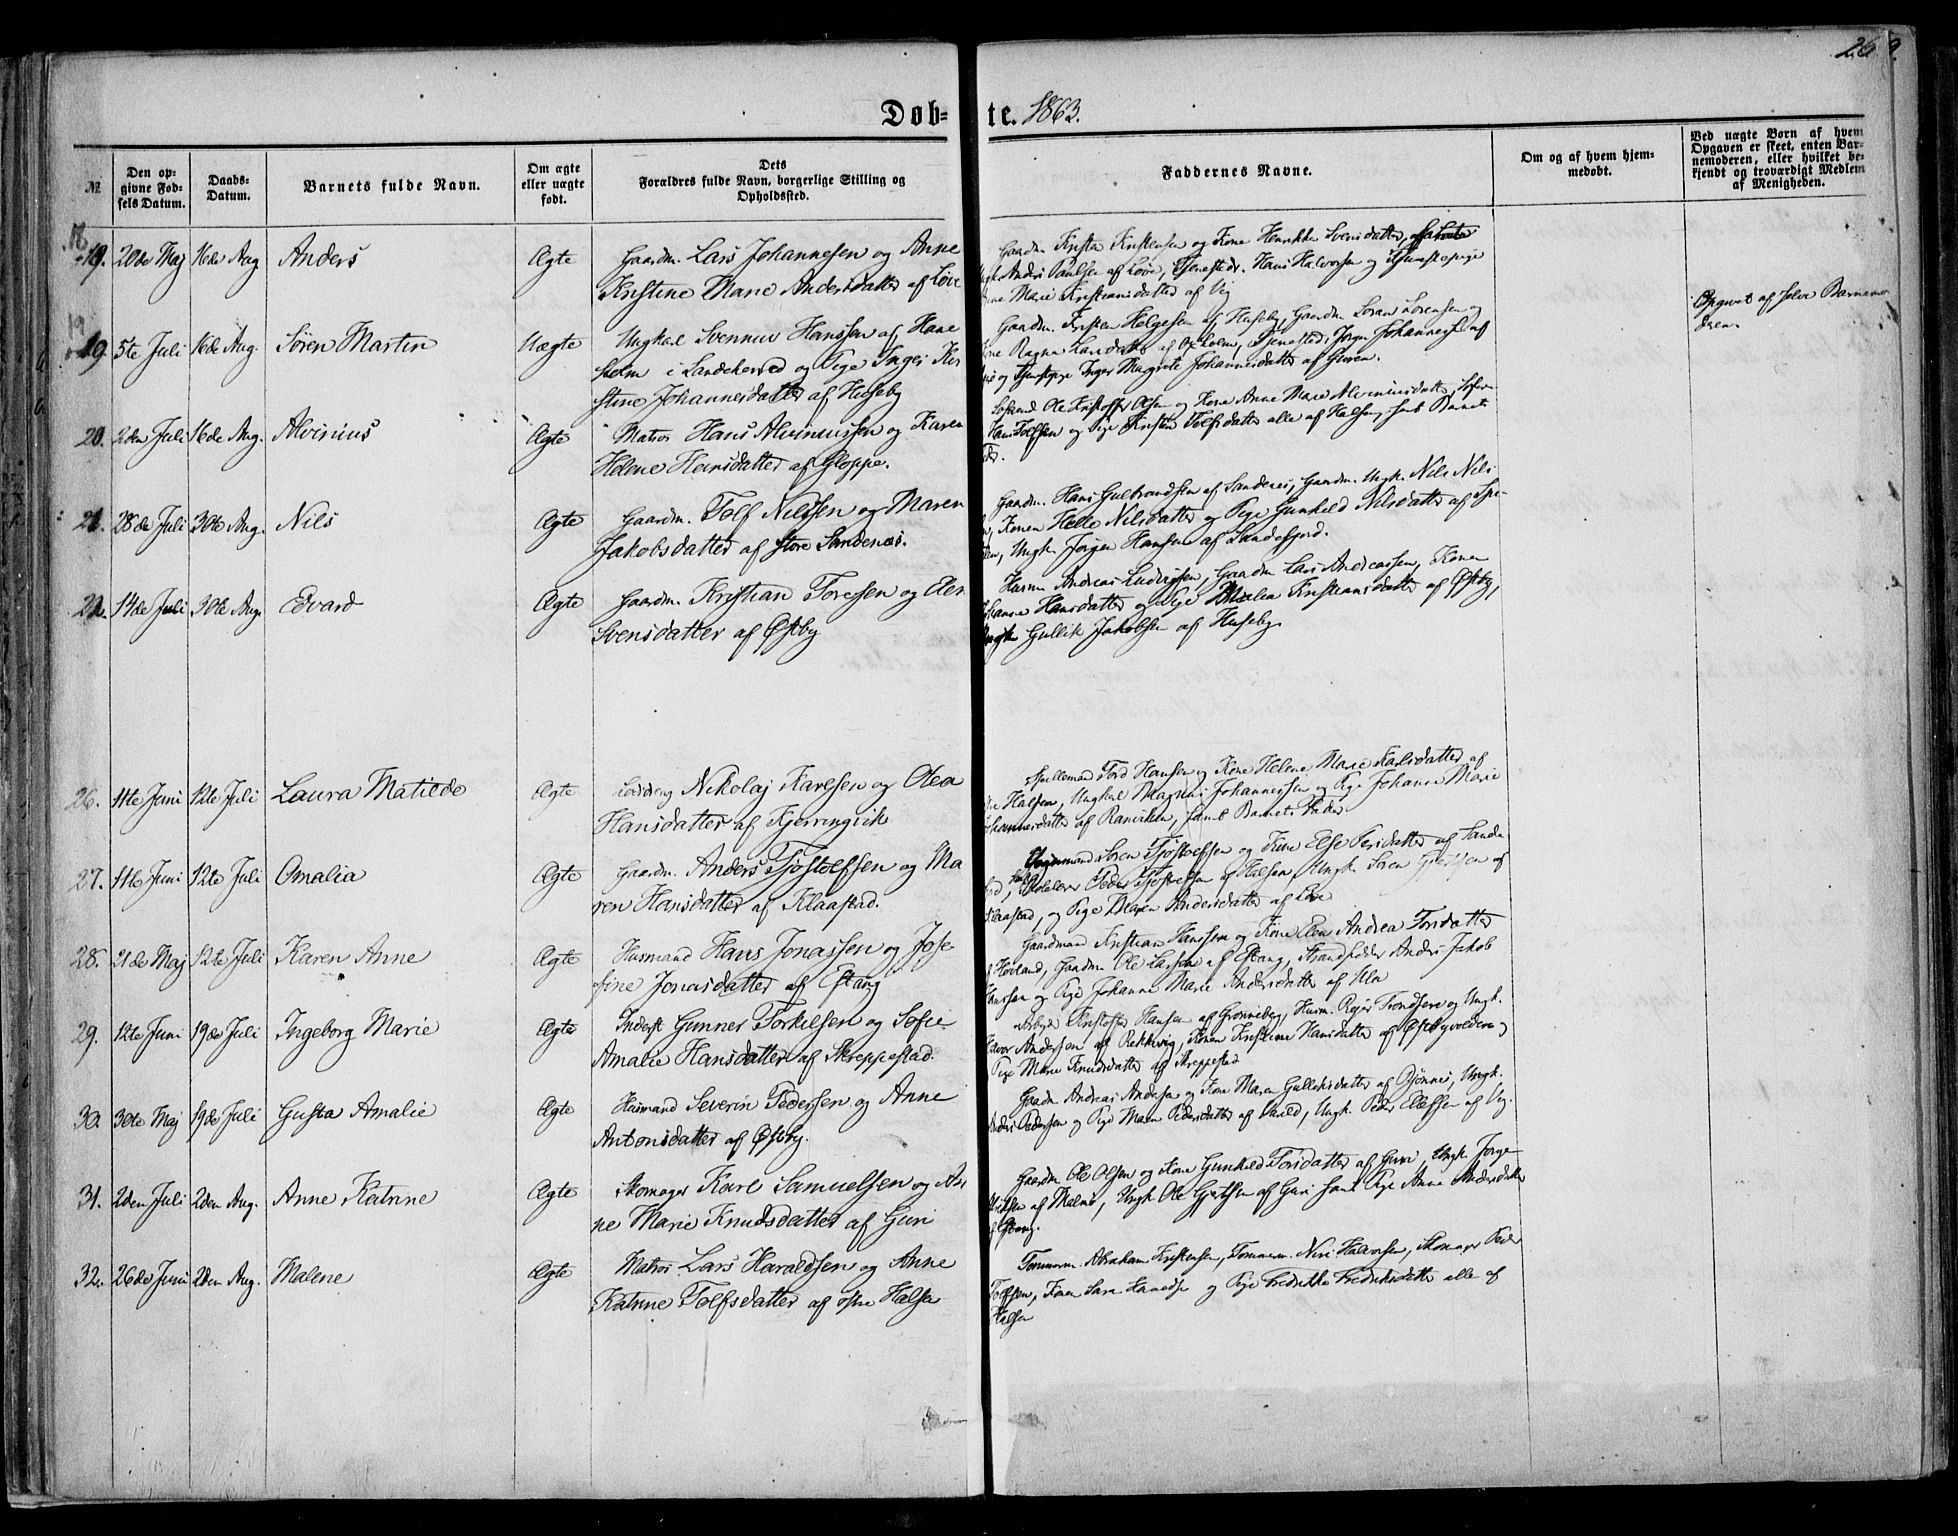 269.
Døb-te. 1863.
№
Den opgivne Fødsels Datum.
Daabs-Datum.
Barnets fulde Navn.
Om ægte eller uægte født.
Dets Forældres fulde Navn, borgerlige Stilling og Opholdssted.
Faddernes Navne.
Om og af hvem hjemmedøbt.
Ved uægte Børn af hvem Opgaven er skeet, enten Barnemoderen, eller hvilket bekjendt og troværdigt Medlem af Menigheden.
18. 20de Maj 16de Aug Anders Ægte Gaardm. Lars Johannesen og Anne
Kristine Marie Andersdatter af Løve
Gaardm. Kristen Kristensen og Kone Henrikka Svensdatter,
Ungk Anders Paulsen af Løve, Tjenestedr. Hans Halvorsen og Tjenestepige
Marie Kristiansdatter af Vig
19. 5te Juli 16de Aug Søren Martin Uægte Ungkal Svennus Hanssen af Hane
holm i Landeherred og Pige Inger Kir
stine Johannesdatter af Huseby
Gaardm. Kristen Helgesen af Huseby, Gaardm Søren Sørensen og
Kone Ragna Larsdatter af Oxholm, Tjenestedr. Jørgen Johannesen af
og Tjenstpige Inger Magrete Johannesdatter af Guren.
Opgivet af selve Barnemo
deren
20. 2den Juli 16de Aug. Alvinius Ægte Matros Hans Alviniussen og Karen
Helene Hansdatter af Gloppe.
Ole Kristoffer Olsen og Kone Anne Marie Alviniusdatter,
Hans Tolfsen og Pige Kirsten Tolfsdatter alle af Halsen, samt Barnets
Fader.
21. 28de Juli 30te Aug. Nils Ægte Gaardm. Tolf Nilssen og Maren
Jakobsdatter af Store Sandenæs.
Gaardm. Hans Gulbrandsen af Sandenes, Gaardm. Ungk. Nils Nils
Konen Helle Nilsdatter og Pige Gunhild Nilsdatter af
Ungk. Jørgen Hansen af Sandefjord.
22. 14de Juli 30te Aug. Edvard Ægte Gaardm. Kristian Toresen og Elen
Svensdatter af Østby
Husm Andreas Ludvigsen, Gaardm Lars Andreassen, Konen
Johanne Hansdatter og Pige Malea Kristiansdatter af Østby,
Ungk Gullik Jakobsen af Huseby
26. 11te Juni 12te Juli Laura Matilde Ægte Nikolaj Karlsen og Olea
Hansdatter af Kjerringvik
Spillemand Tord Hansen og Kone Helene Marie Karlsdatter af
Halsen, Ungkal Magnus Johannessen og Pige Johanne Marie
Johannesdatter af Ranviken, samt Barnets Fader
27. 11te Juni 12te Juli Omalia Ægte Gaardm. Anders Tjøstolfsen og Ma
ren Hansdatter af Klaastad.
Søren Tjøstolfsen og Kone Else Persdatter af Sande
Peder Tjøstelfsen af Halsen, Ungk Søren af
Klaastad, og Pige Maren Andersdatter af Løve
28. 21de Maj 12te Juli Karen Anne Ægte Husmand Hans Jonassen og Jose
fine Jonasdatter af Eftang
Gaardmand Kristian Hanssen og Kone Elen Andrea Torsdatter
af Høiland, Gaardm Ole Larsen af Eftang, Strandsidder Anders Jakob
Hanssen og Pige Johanne Marie Andersdatter af Ula
29. 12te Juni 19de Juli Ingeborg Marie Ægte Inderst Gunner Torkilsen og Sofie
Amalie Hansdatter af Skreppestad.
Arbejd. Kristoffer Hansen af Grønneberg, Husm. Rejer Trondsen og Ungk.
Halvor Andersen af Rekkevig, Konen Kristine Hansdatter af Østbyvolden og
Pige Marie Knudsdatter af Skreppestad
30. 30te Maj 19de Juli Gusta Amalie Ægte Husmand Severin Pedersen og Anne
Antonsdatter af Østby.
Gaardm Andreas Andersen og Kone Maren Gulliksdatter af Bjønnes, Ungk.
Anders Pedersen og Pige Maren Pedersdatter af Ungk. Peder Ellefsen af Vig.
31. 2den Juli 2den Aug. Anne Katrine Ægte Skomager Karl Samuelsen og An
ne Marie Knudsdatter af Guri
Gaardm Ole Olsen og Kone Gunhild Torsdatter af Guri, Ungk Jørge
af Malmø, Ungk Ole Gjertsen af Guri samt Pige Anne Andersdatter
af Eftang.
32. 26de Juni 2den Aug. Malene Ægte Matros Lars Haraldsen og Anne
Katrine Tolfsdatter af østre Halsen
Tømmerm. Abraham Kristensen, Tømmerm. Nies Halvorsen, Skomager Peder
Tolfsen, Konen Sara og Pige Fredrikke Fredriksdatter alle af
Halsen